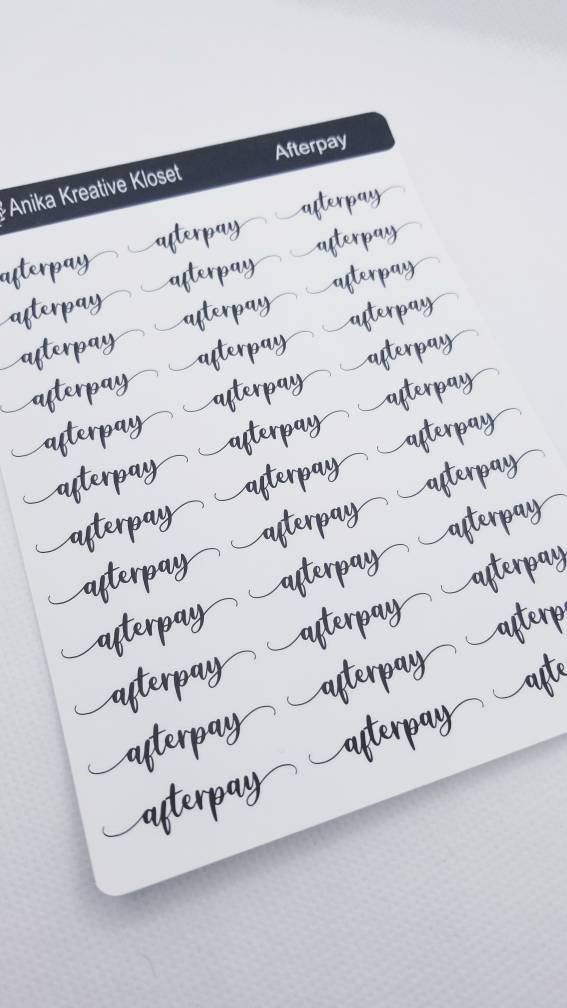 Anika Kreative Kloset Afterpay
afterpay afterpay afterpay
afterpay afterpay afterpay
afterpay afterpay afterpay
afterpay afterpay afterpay
afterpay afterpay afterpay
afterpay afterpay afterpay
afterpay afterpay afterpay
afterpay afterpay afterpay
afterpay afterpay afterpay
afterpay afterpay afterpay
afterpay afterpay afterp
afterpay afterpay afte